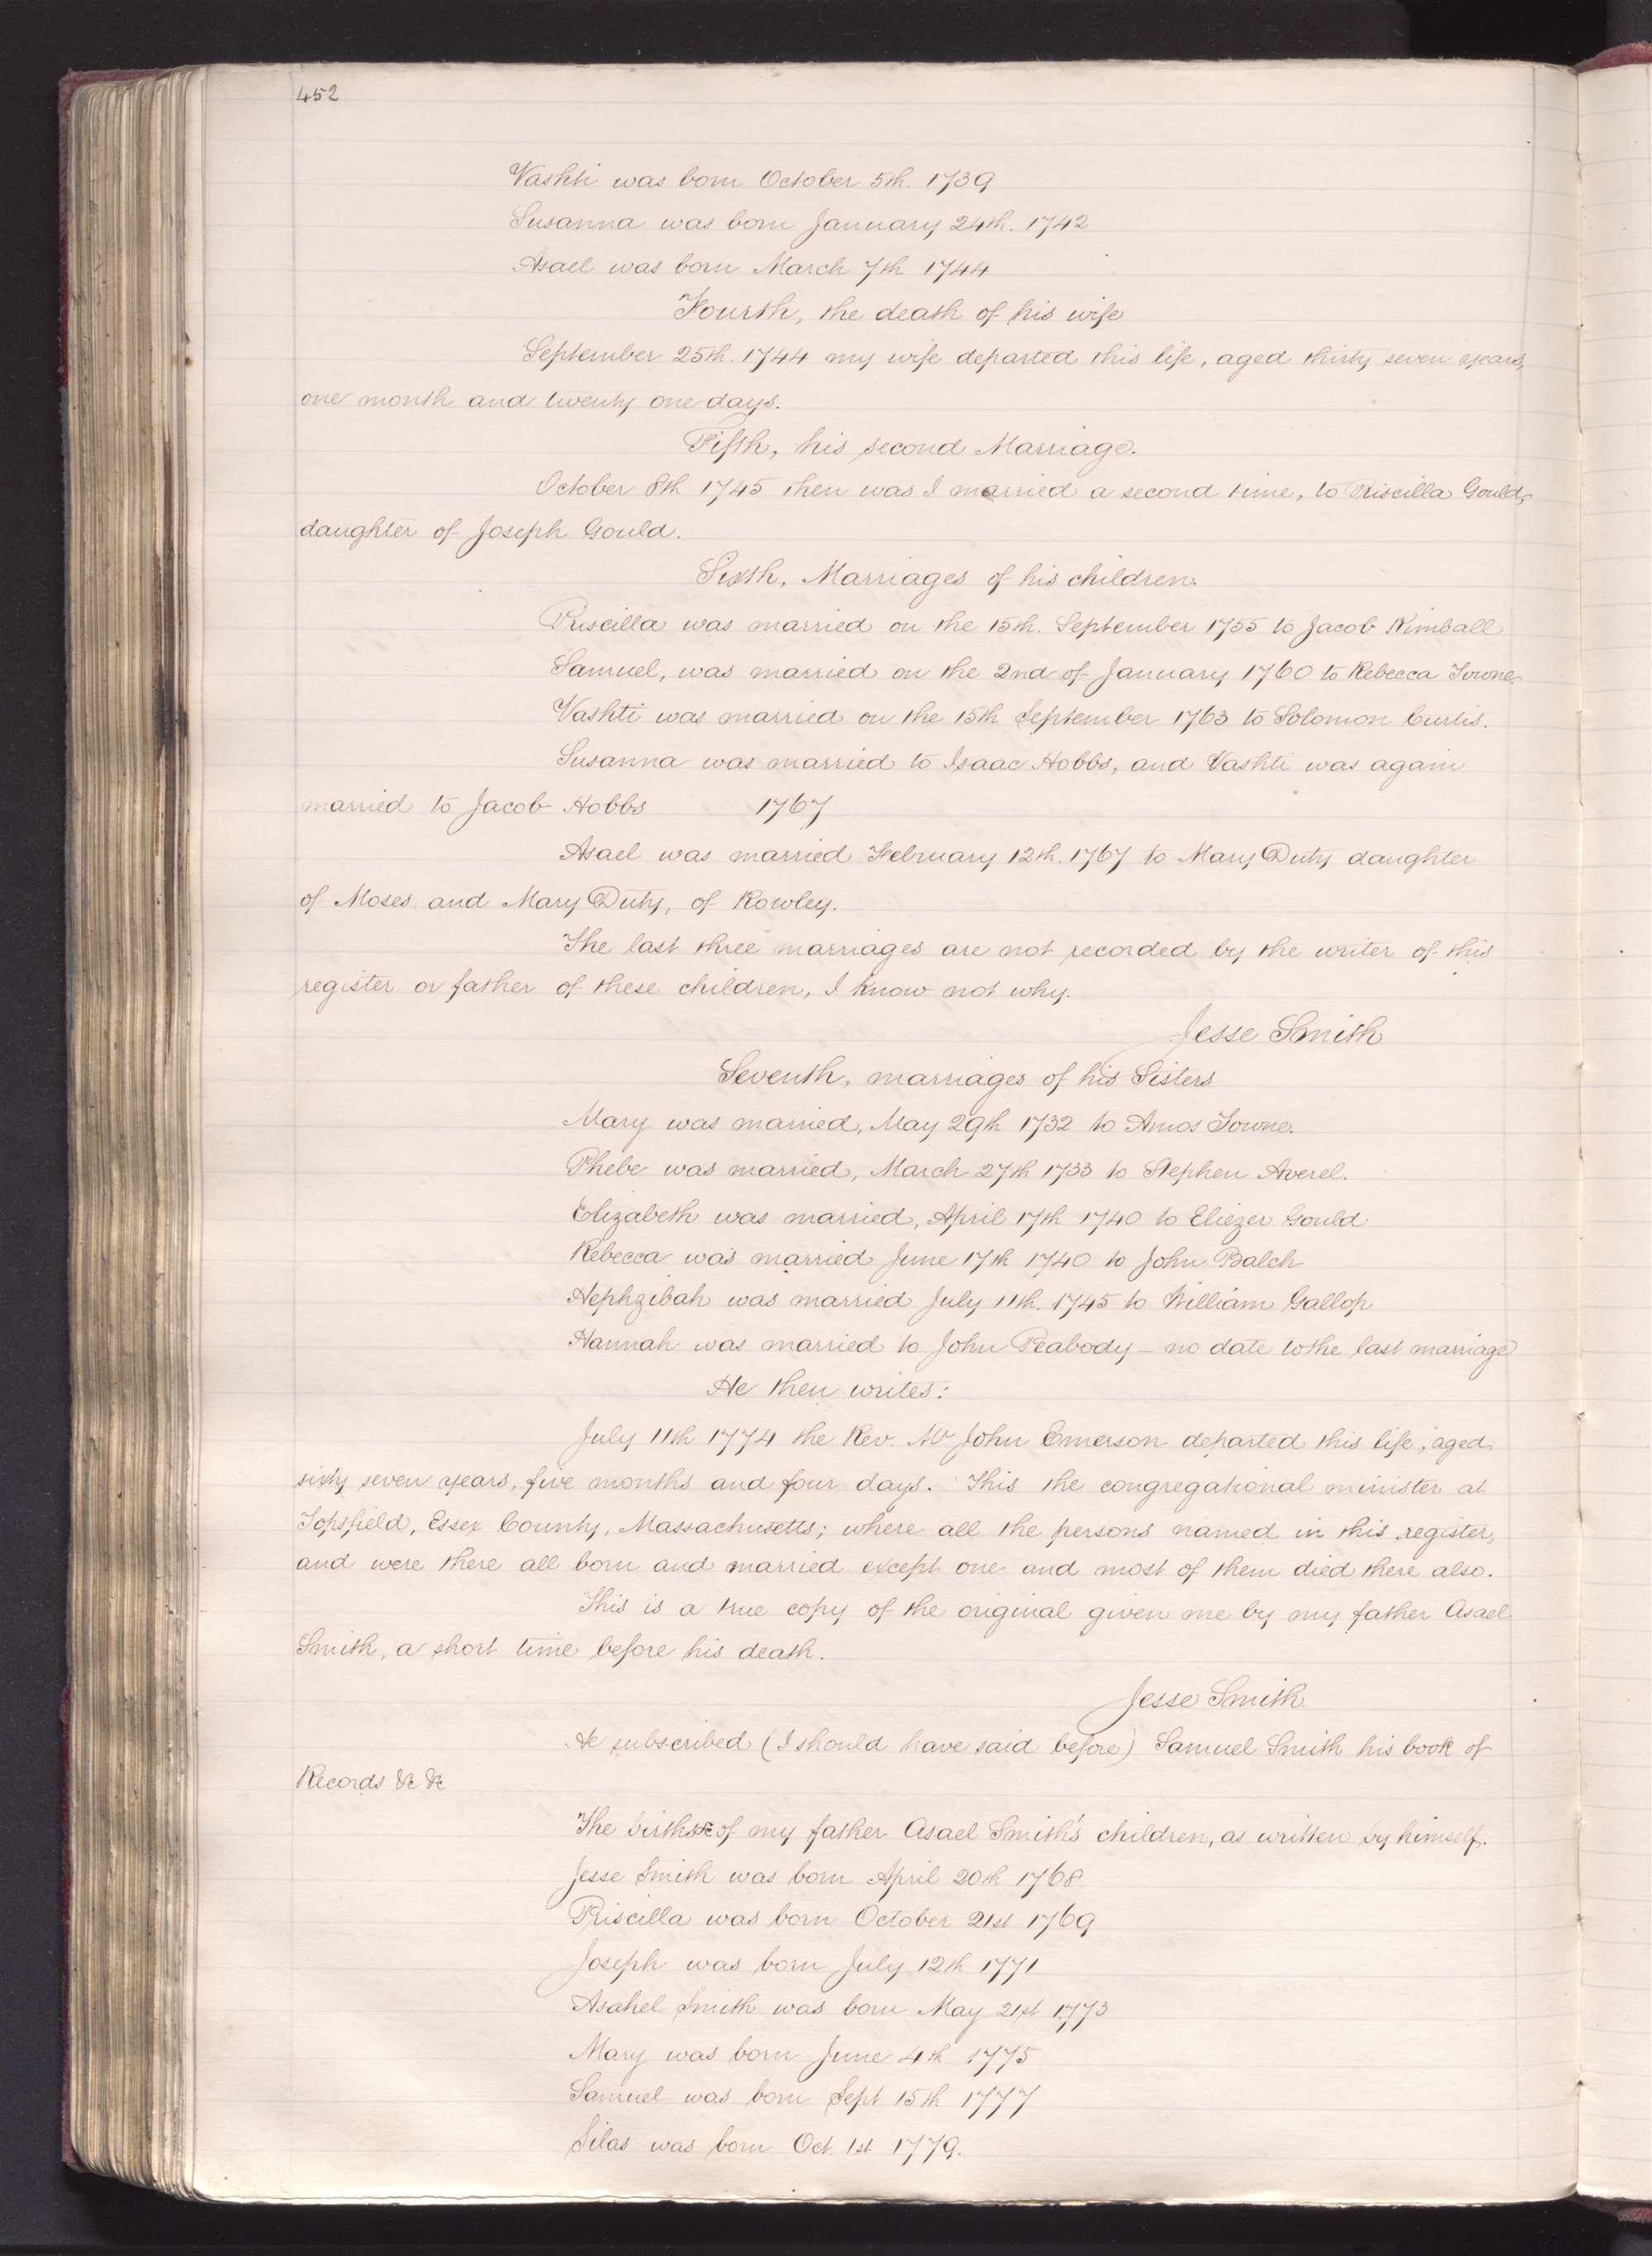 452
Vashti was born October 5th. 1739
Susanna was born January 24th. 1742
Asael was born March 7th 1744
Fourth, the death of his wife
September 25th. 1744 my wife departed this life, aged thirty seven years,
one month and twenty one days.
Fifth, his second Marriage.
October 8th 1745 then was I married a second time, to Priscilla Gould,
daughter of Joseph Gould.
Sixth, Marriages of his children.
Priscilla was married on the 15th. September 1755 to Jacob Kimball
Samuel, was married on the 2nd of January 1760 to Rebecca Towne.
Vashti was married on the 15th September 1763 to Solomon Curtis.
Susanna was married to Isaac Hobbs, and Vashti was again
married to Jacob Hobbs 1767
Asael was married February 12th. 1767 to Mary Duty daughter
of Moses and Mary Duty, of Rowley.
The last three marriages are not recorded by the writer of this
register or father of these children, I know not why.
Jesse Smith
Seventh, marriages of his Sisters
Mary was married, May 29th 1732 to Amos Towne.
Phebe was married, March 27th 1733 to Stephen Averel.
Elizabeth was married, April 17th 1740 to Eliezer Gould
Rebecca was married June 17th 1740 to John Balch
Hephzibah was married July 11th. 1745 to William Gallop
Hannah was married to John Peabody – no date to the last marriage
He then writes:
July 11th 1774 the Rev. Mr John Emerson departed this life, aged
sixty seven years, five months and four days. This the congregational minister at
Topsfield, Essex County, Massachusetts; where all the persons named in this register,
and were there all born and married except one and most of them died there also.
This is a true copy of the original given me by my father Asael
Smith, a short time before his death.
Jesse Smith.
He subscribed (I should have said before) Samuel Smith his book of
Records &c &c
The births &c of my father Asael Smith's children, as written by himself.
Jesse Smith was born April 20th 1768
Priscilla was born October 21st 1769
Joseph was born July 12th 1771
Asahel Smith was born May 21st 1773
Mary was born June 4th 1775
Samuel was born Sept 15th 1777
Silas was born Oct. 1st 1779.